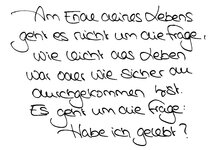 Am Ende deines Lebens
geht es nicht um die Frage,
wie leicht das Leben
war oder wie sicher du
durchgekommen bist.
Es geht um die Frage:
Habe ich gelebt?